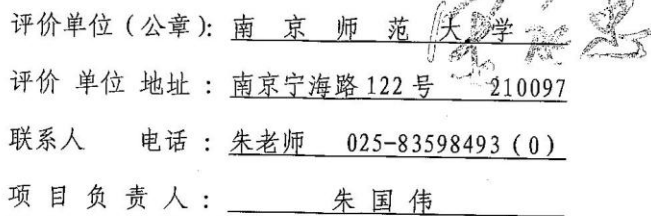 评价单位（公章）: 南京师范大学
评价单位地址: 南京宁海路122号 210097
联系人 电话: 朱老师 025-83598493(0)
项目负责人: 朱国伟